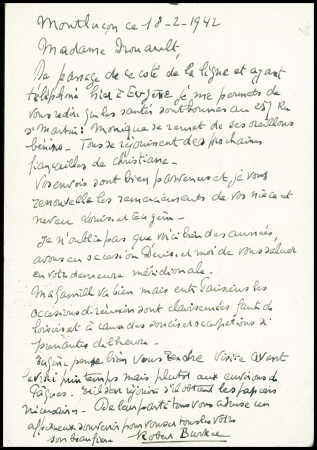 Montluçon ce 18-2-1942
Madame Drouault,
De passage de ce coté de la ligne et ayant
téléphoné hier à Eugène je me permets de
vous redire que les santés sont bonnes au 257 Rue
St Martin: Monique se remet de ses oreillons
bénins. Tous se réjouissent des prochaines
fiançailles de Christiane.
Vos envois sont bien parvenus et je vous
renouvelle les remerciements de vos nièce et
neveu Louise et Eugène.
Je n'oublie pas que voici bien des années,
avons eu occasion Denise et moi de vous saluer
en votre demeure méridionale.
Ma famille va bien mais entre Parisiens les
occasions de réunion sont clairsemées faute de
loisirs et à cause des soucis et occupations si
prenantes de l'heure.
Eugène pense bien vous rendre visite avant
le printemps mais plutôt aux environs de
Pâques. s'il obtient les papiers
nécessaires. De leur part à tous vous adresse un
affectueux souvenir pour vous et tous les vôtres
son beau frère Robert